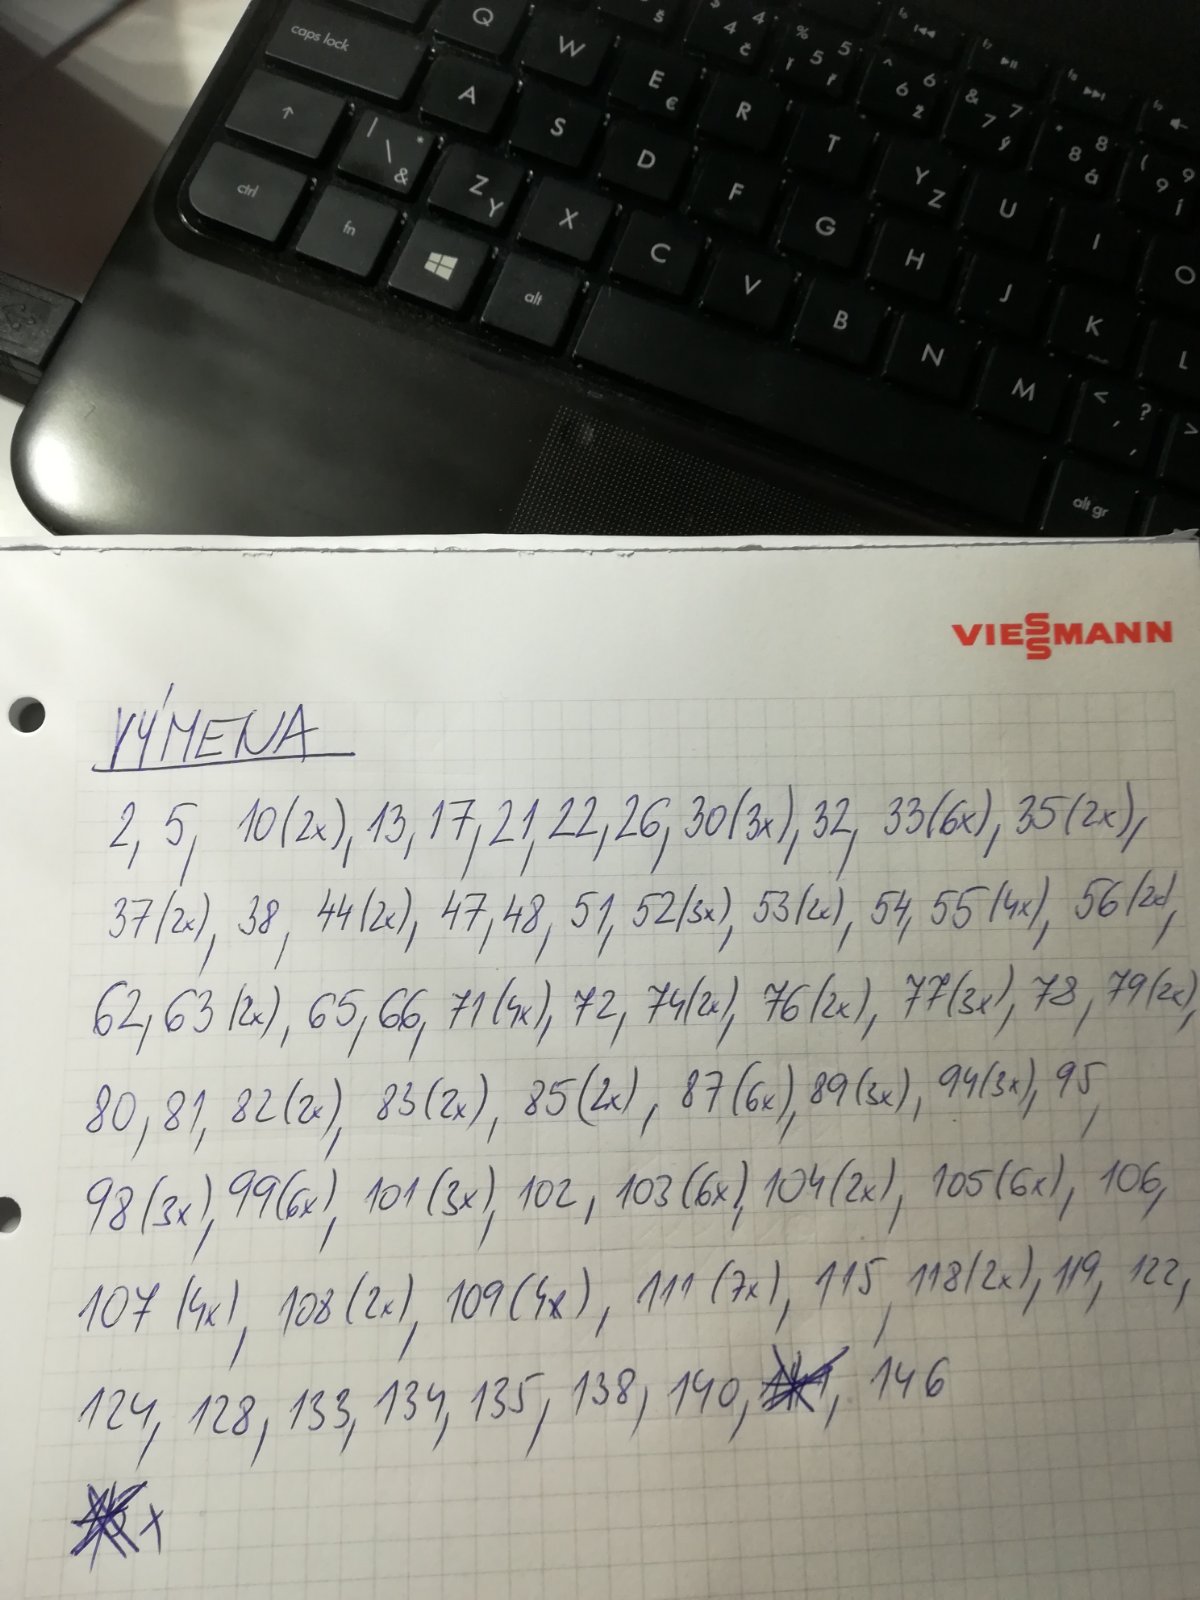 Q W E € R T Y Z U I O
caps lock A S D F G H J K L
↑ | \ * & Z Y X C V B N M < , ? ;
ctrl fn alt alt gr
š $ 4 4 č % 5 5 ř ^ 6 6 ž & 7 7 ý * 8 8 á ( 9 9 í
VIESSMANN
VÝMENA
2, 5, 10(2x), 13, 17, 21, 22, 26, 30(3x), 32, 33(6x), 35(2x),
37(2x), 38, 44(2x), 47, 48, 51, 52(3x), 53(2x), 54, 55(4x), 56(2x),
62, 63(2x), 65, 66, 71(4x), 72, 74(2x), 76(2x), 77(3x), 78, 79(2x),
80, 81, 82(2x), 83(2x), 85(2x), 87(6x), 89(3x), 94(3x), 95,
98(3x), 99(6x), 101(3x), 102, 103(6x), 104(2x), 105(6x), 106,
107(4x), 108(2x), 109(4x), 111(7x), 115, 118(2x), 119, 122,
124, 128, 133, 134, 135, 138, 140, 146
x